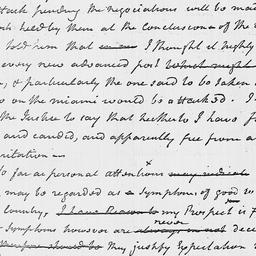 attack pending the negociations will be mad
held by them at the conclusions of the
told him that I thought it highly
every new advanced post which might
, & particularly the one said to be taken
on the miami would be attacked. I
the Justice to say that heetherto I have f
and candid, and apparently free from a
irritation
so far as personal attentions
may be regarded as symptoms of good
Country, I have Reason to my Prospect is f
never
symptoms however are always, or not dec
Therefore should be they justify Expectation